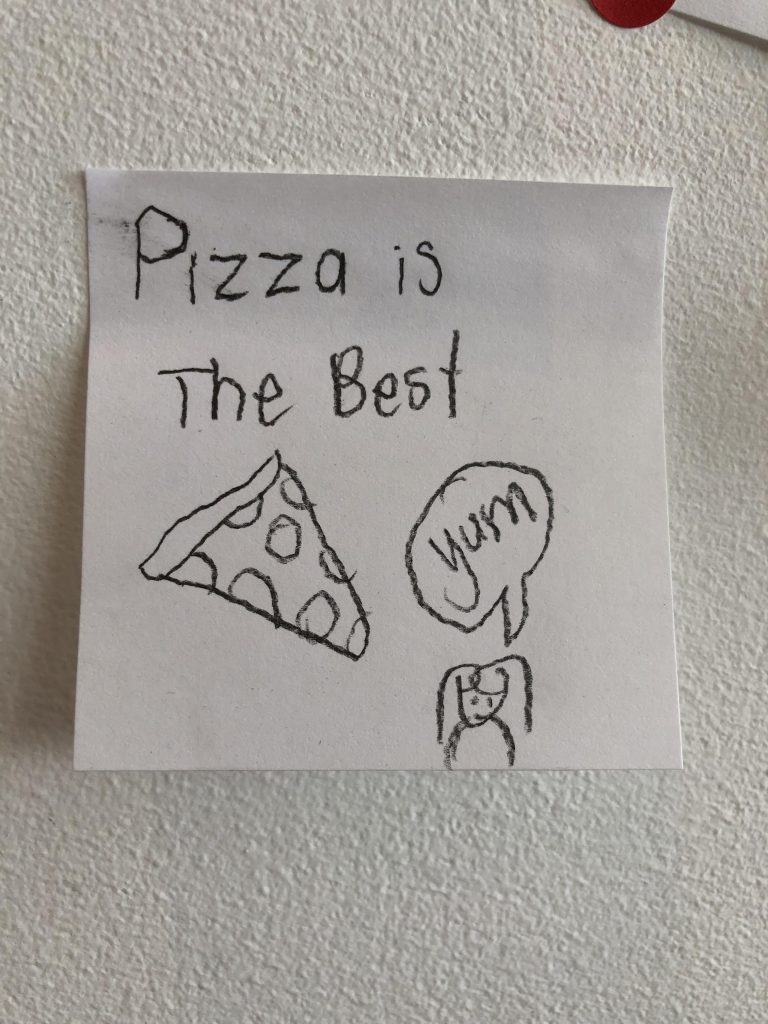 Pizza is
The Best
yum